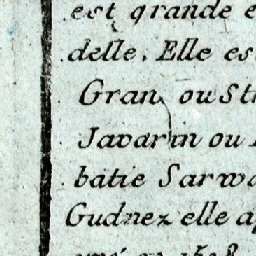 est grande e
delle. Elle es
Gran, ou St
Javarin ou
batie Sarwa
Gudnez elle a